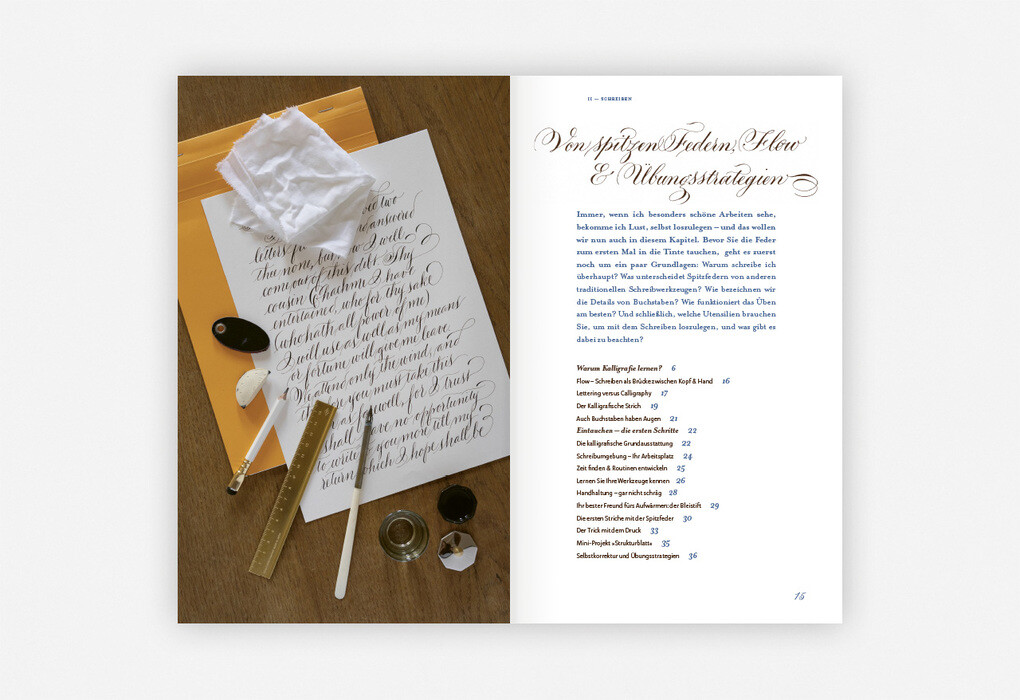 two
answered
letters
the none, but now I well
come out of this debt. Thy
cousin I have
entertained, who for thy sake
(who hath all power of me)
I will use as well as my means
or fortune will give me leave.
We attend only the wind, and
you must take this
as farewell, for I trust
shall have no opportunity
to write you more till my
return which I hope shall be
II — SCHREIBEN
Von spitzen Federn, Flow
& Übungsstrategien
Immer, wenn ich besonders schöne Arbeiten sehe,
bekomme ich Lust, selbst loszulegen – und das wollen
wir nun auch in diesem Kapitel. Bevor Sie die Feder
zum ersten Mal in die Tinte tauchen, geht es zuerst
noch um ein paar Grundlagen: Warum schreibe ich
überhaupt? Was unterscheidet Spitzfedern von anderen
traditionellen Schreibwerkzeugen? Wie bezeichnen wir
die Details von Buchstaben? Wie funktioniert das Üben
am besten? Und schließlich, welche Utensilien brauchen
Sie, um mit dem Schreiben loszulegen, und was gibt es
dabei zu beachten?
Warum Kalligrafie lernen? 6
Flow – Schreiben als Brücke zwischen Kopf & Hand 16
Lettering versus Calligraphy 17
Der Kalligrafische Strich 19
Auch Buchstaben haben Augen 21
Eintauchen – die ersten Schritte 22
Die kalligrafische Grundausstattung 22
Schreibumgebung – Ihr Arbeitsplatz 24
Zeit finden & Routinen entwickeln 25
Lernen Sie Ihre Werkzeuge kennen 26
Handhaltung – gar nicht schräg 28
Ihr bester Freund fürs Aufwärmen: der Bleistift 29
Die ersten Striche mit der Spitzfeder 30
Der Trick mit dem Druck 33
Mini-Projekt »Strukturblatt« 35
Selbstkorrektur und Übungsstrategien 36
15